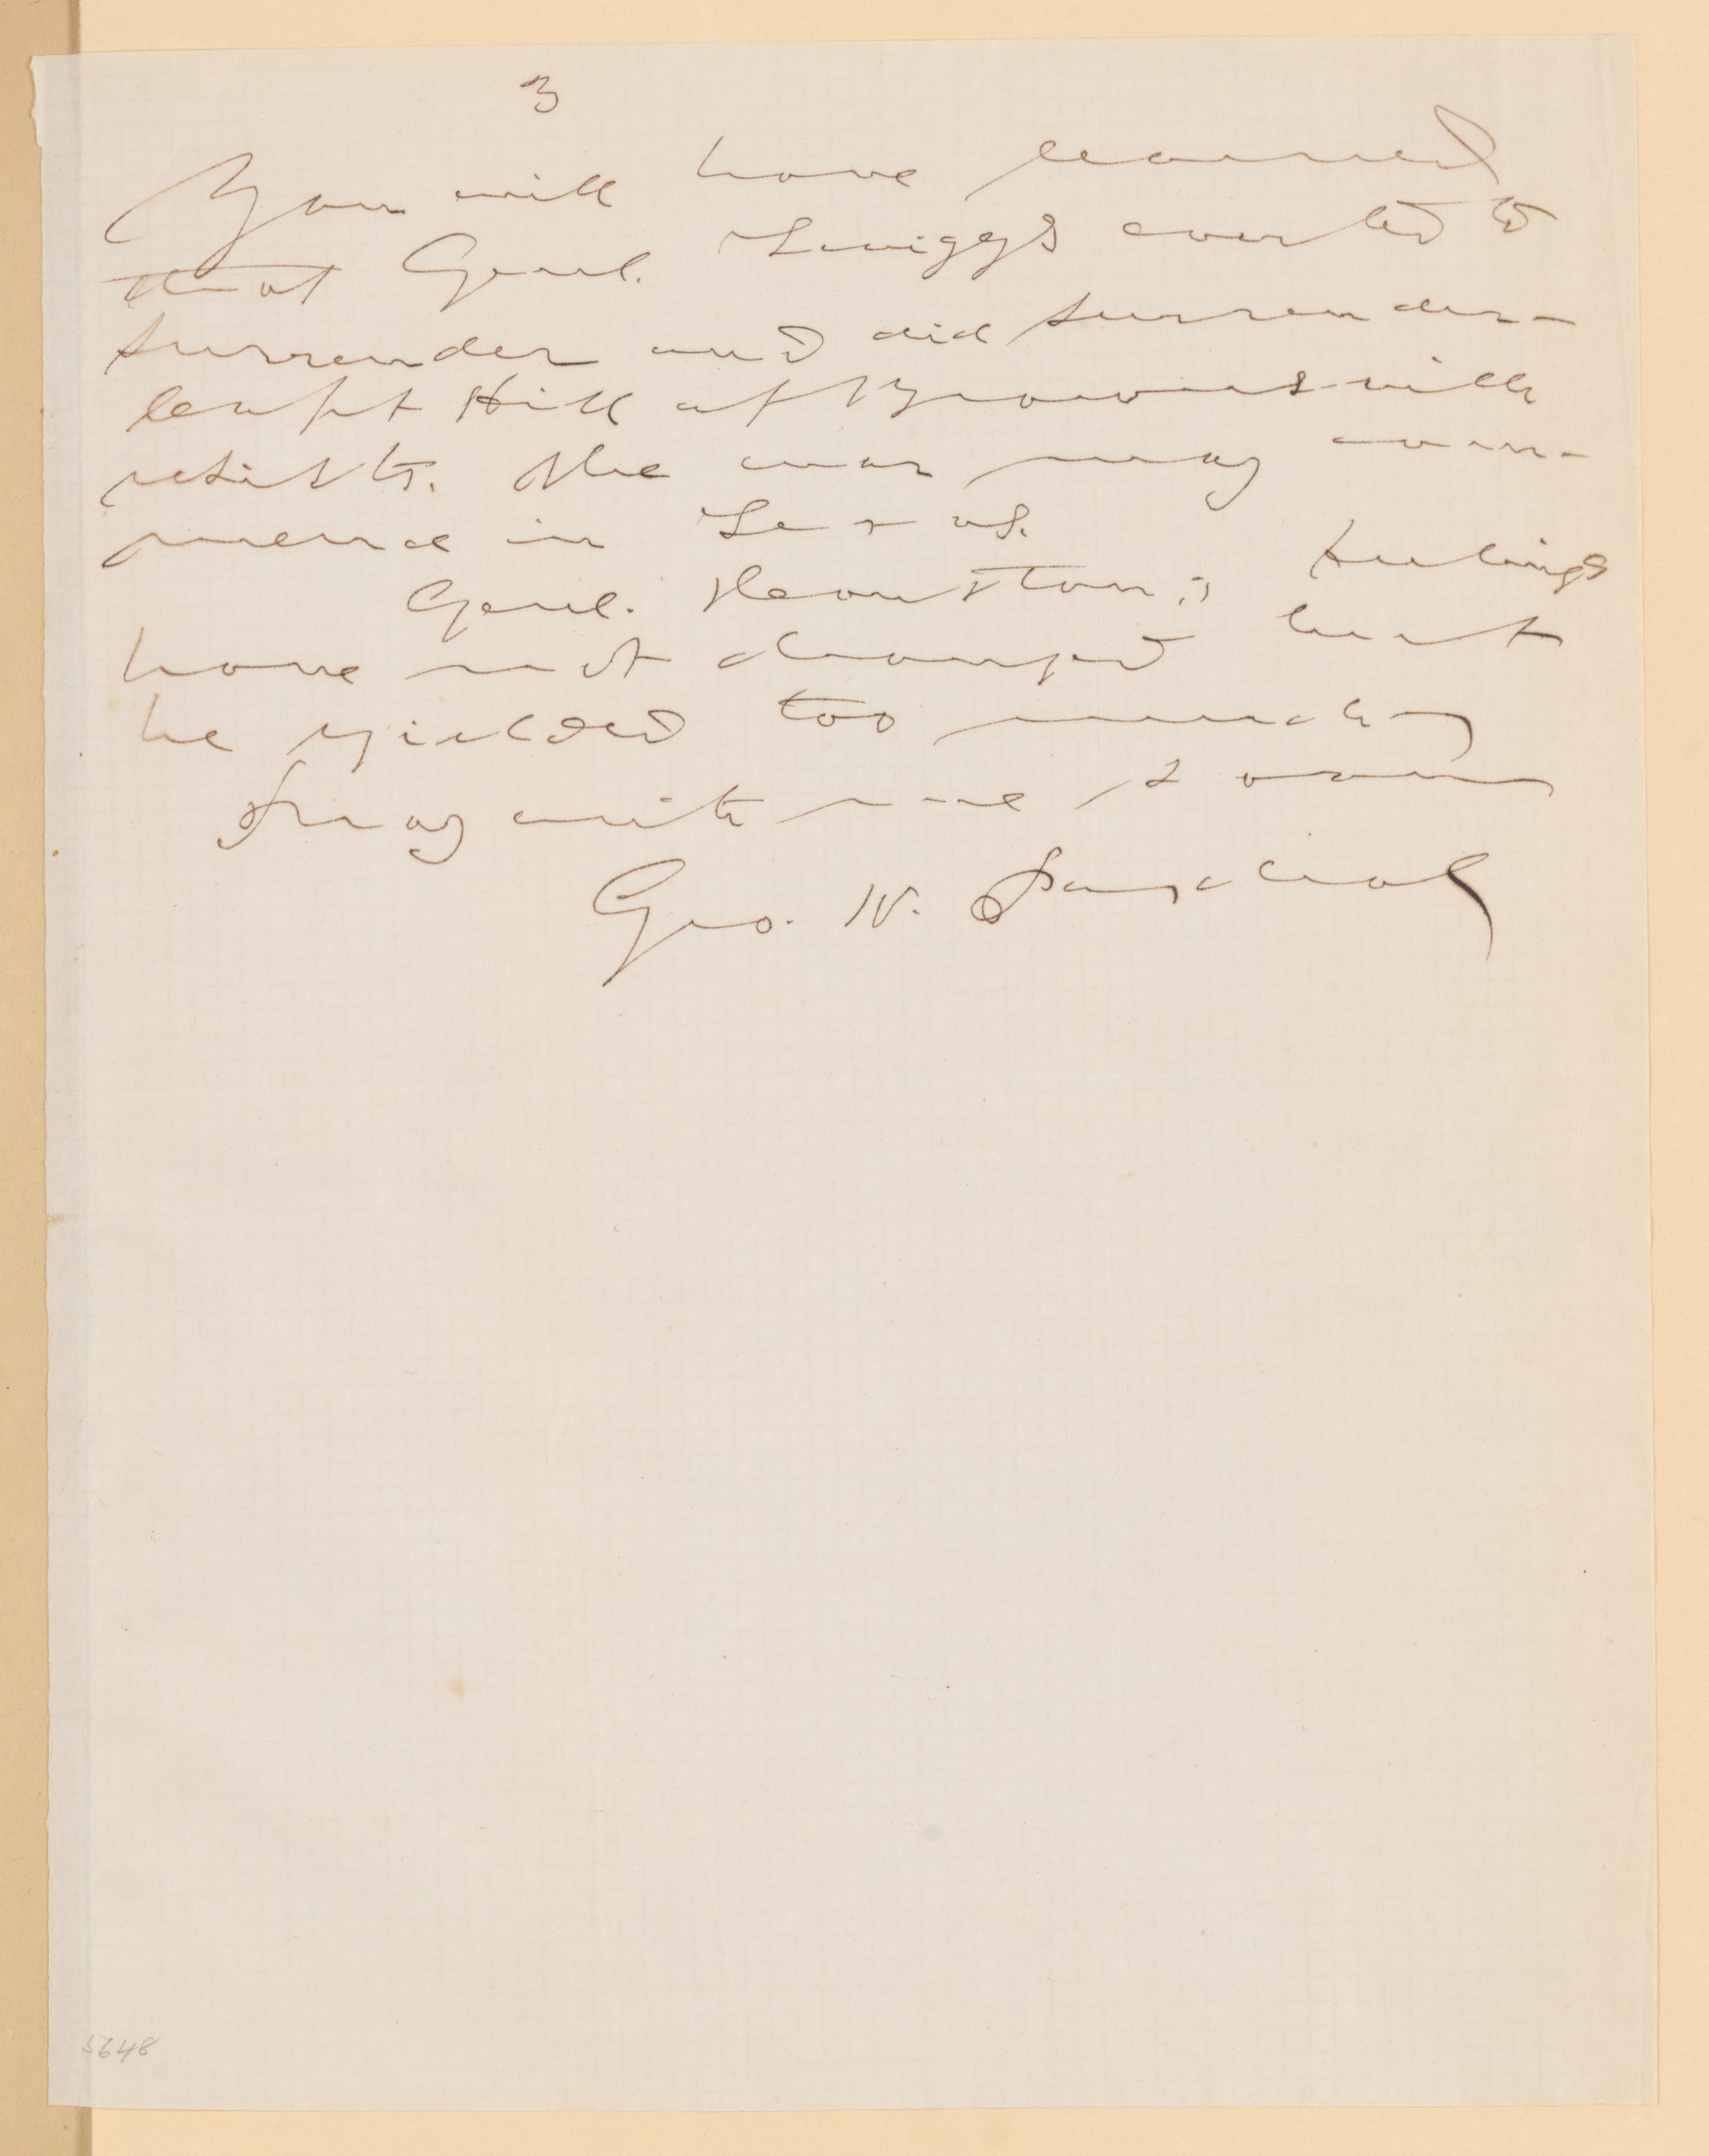 3
You will have learned
that Genl. Twiggs wanted to
surrender and did surrender-
Capt Hill at Brownsville
resists. The war may com-
mence in Texas.
Genl. Houston's feelings
have not changed but
he yielded too much
Pray write me soon
Geo. W. Paschal
5648